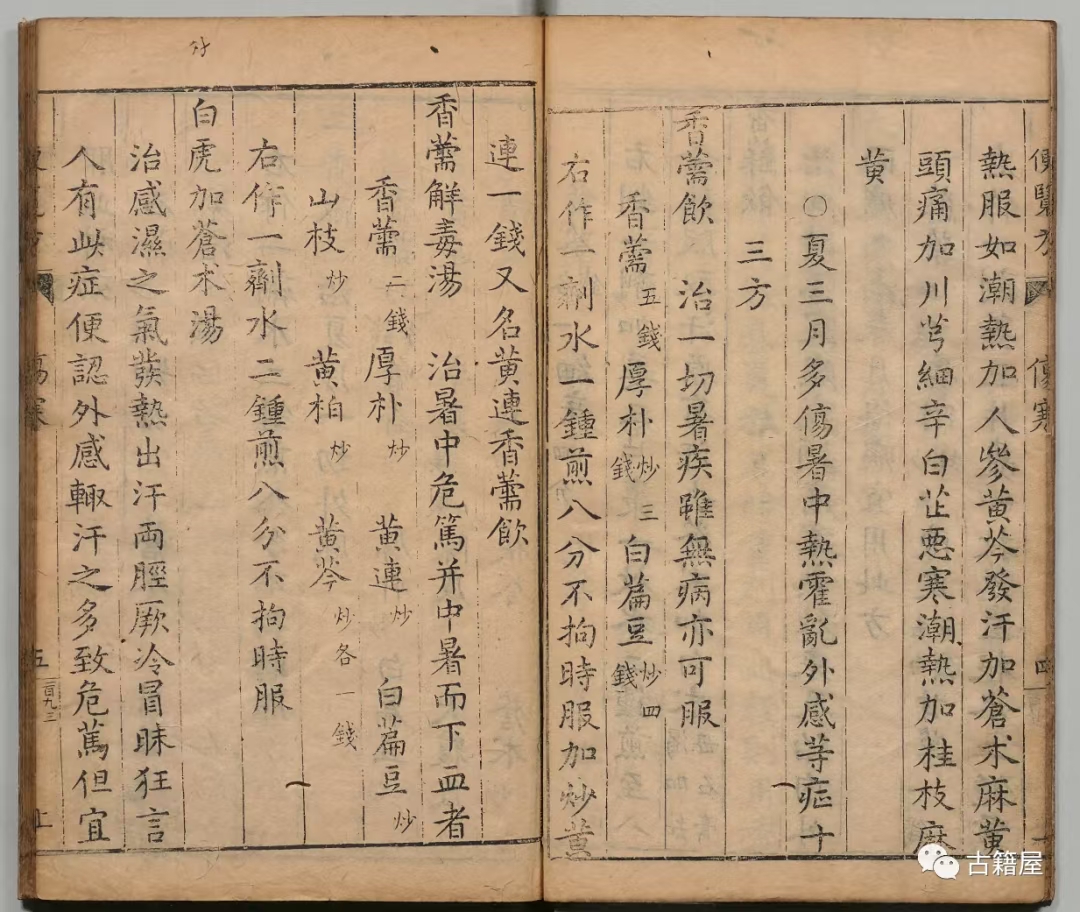 便覽方 傷寒 四
熱服如潮熱加人參黃芩發汗加蒼朮麻黃
頭痛加川芎細辛白芷惡寒潮熱加桂枝麻
黃
○夏三月多傷暑中熱霍亂外感等症十
三方
香薷飲 治一切暑疾雖無病亦可服
香薷五錢厚朴炒三錢白萹豆炒四錢
右作一劑水一鍾煎八分不拘時服加炒黃
連一錢又名黃連香薷飲
香薷解毒湯 治暑中危篤并中暑而下血者
香薷二錢 厚朴炒 黃連炒 白萹豆炒
山枝炒 黃柏炒 黃芩炒各一錢
右作一劑水二鍾煎八分不拘時服
白虎加蒼朮湯
治感濕之氣發熱出汗两脛厥冷冒昧狂言
人有此症便認外感輙汗之多致危篤但宜
傷寒 五 一百九三 上
古籍屋